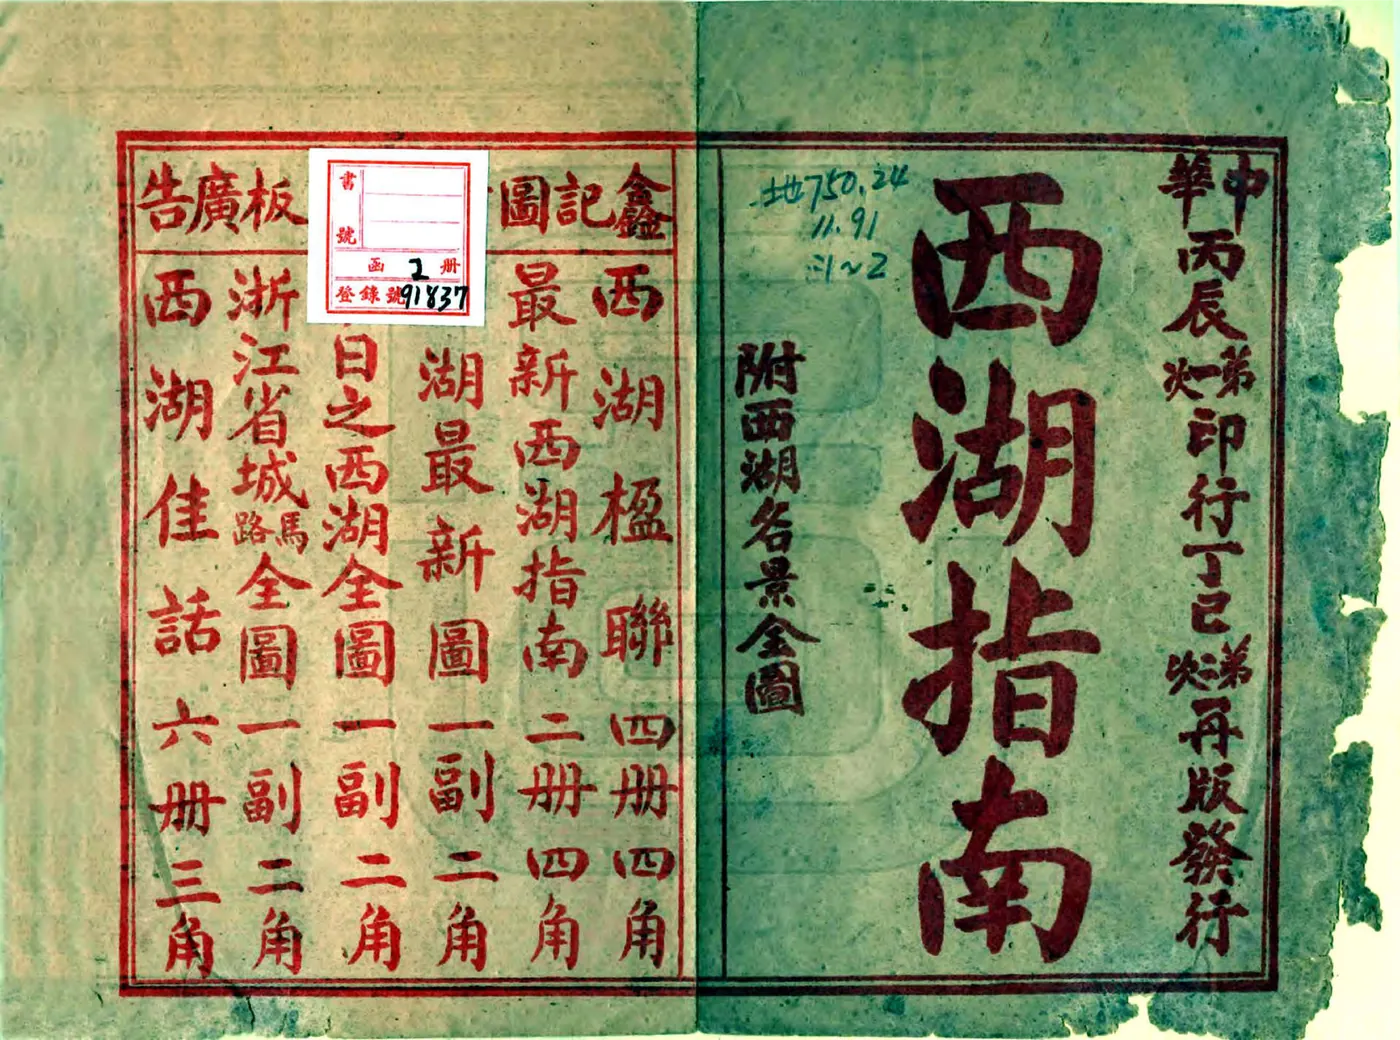 中華丙辰第一次印行丁巳第二次再版發行
西湖指南
附西湖名景全圖
地750.24
11.91
:1~2
鑫記圖
板廣告
西湖楹聯四册四角
最新西湖指南二册四角
湖最新圖一副二角
日之西湖全圖一副二角
浙江省城馬路全圖一副二角
西湖佳話六册三角
書號
函2册
登錄號91837